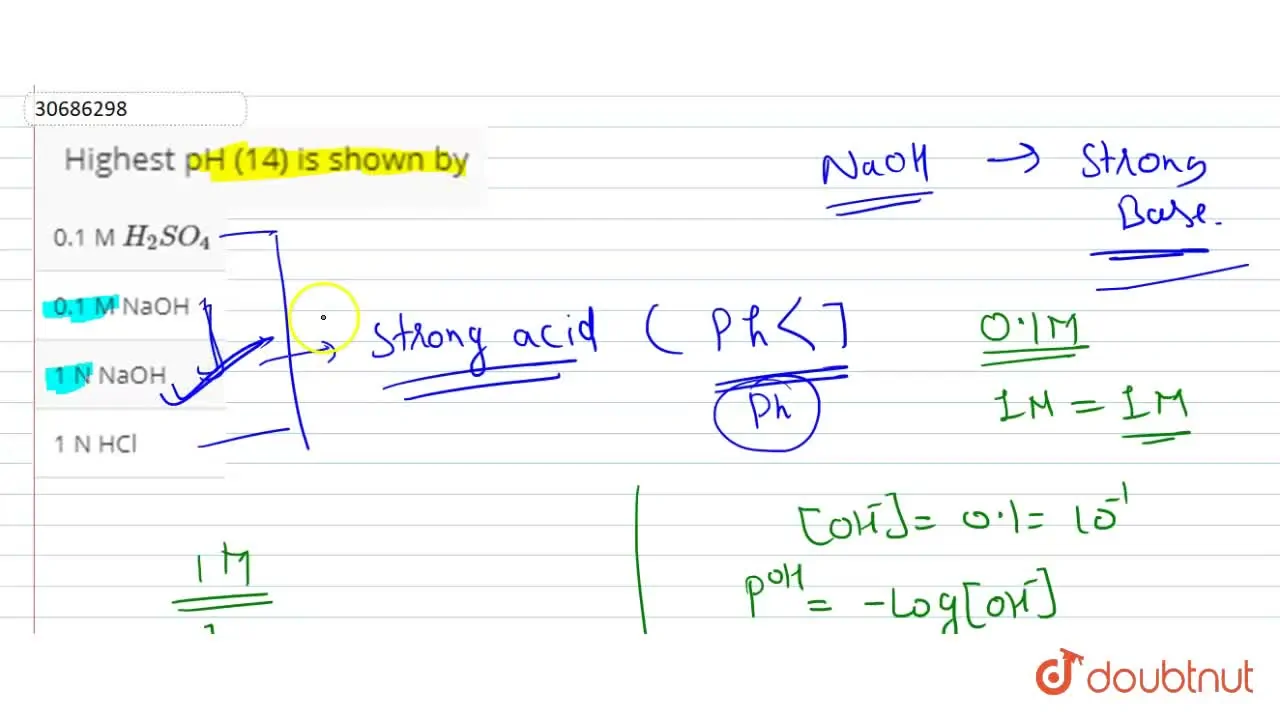 30686298
Highest pH (14) is shown by
NaOH → Strong
Base.
0.1 M H₂SO₄
0.1 M NaOH
Strong acid ( Ph< 7
0.1M
1 N NaOH
Ph
1M = 1M
1 N HCl
[OH⁻] = 0.1 = 10⁻¹
1 M
P^OH = -Log[OH⁻]
doubtnut